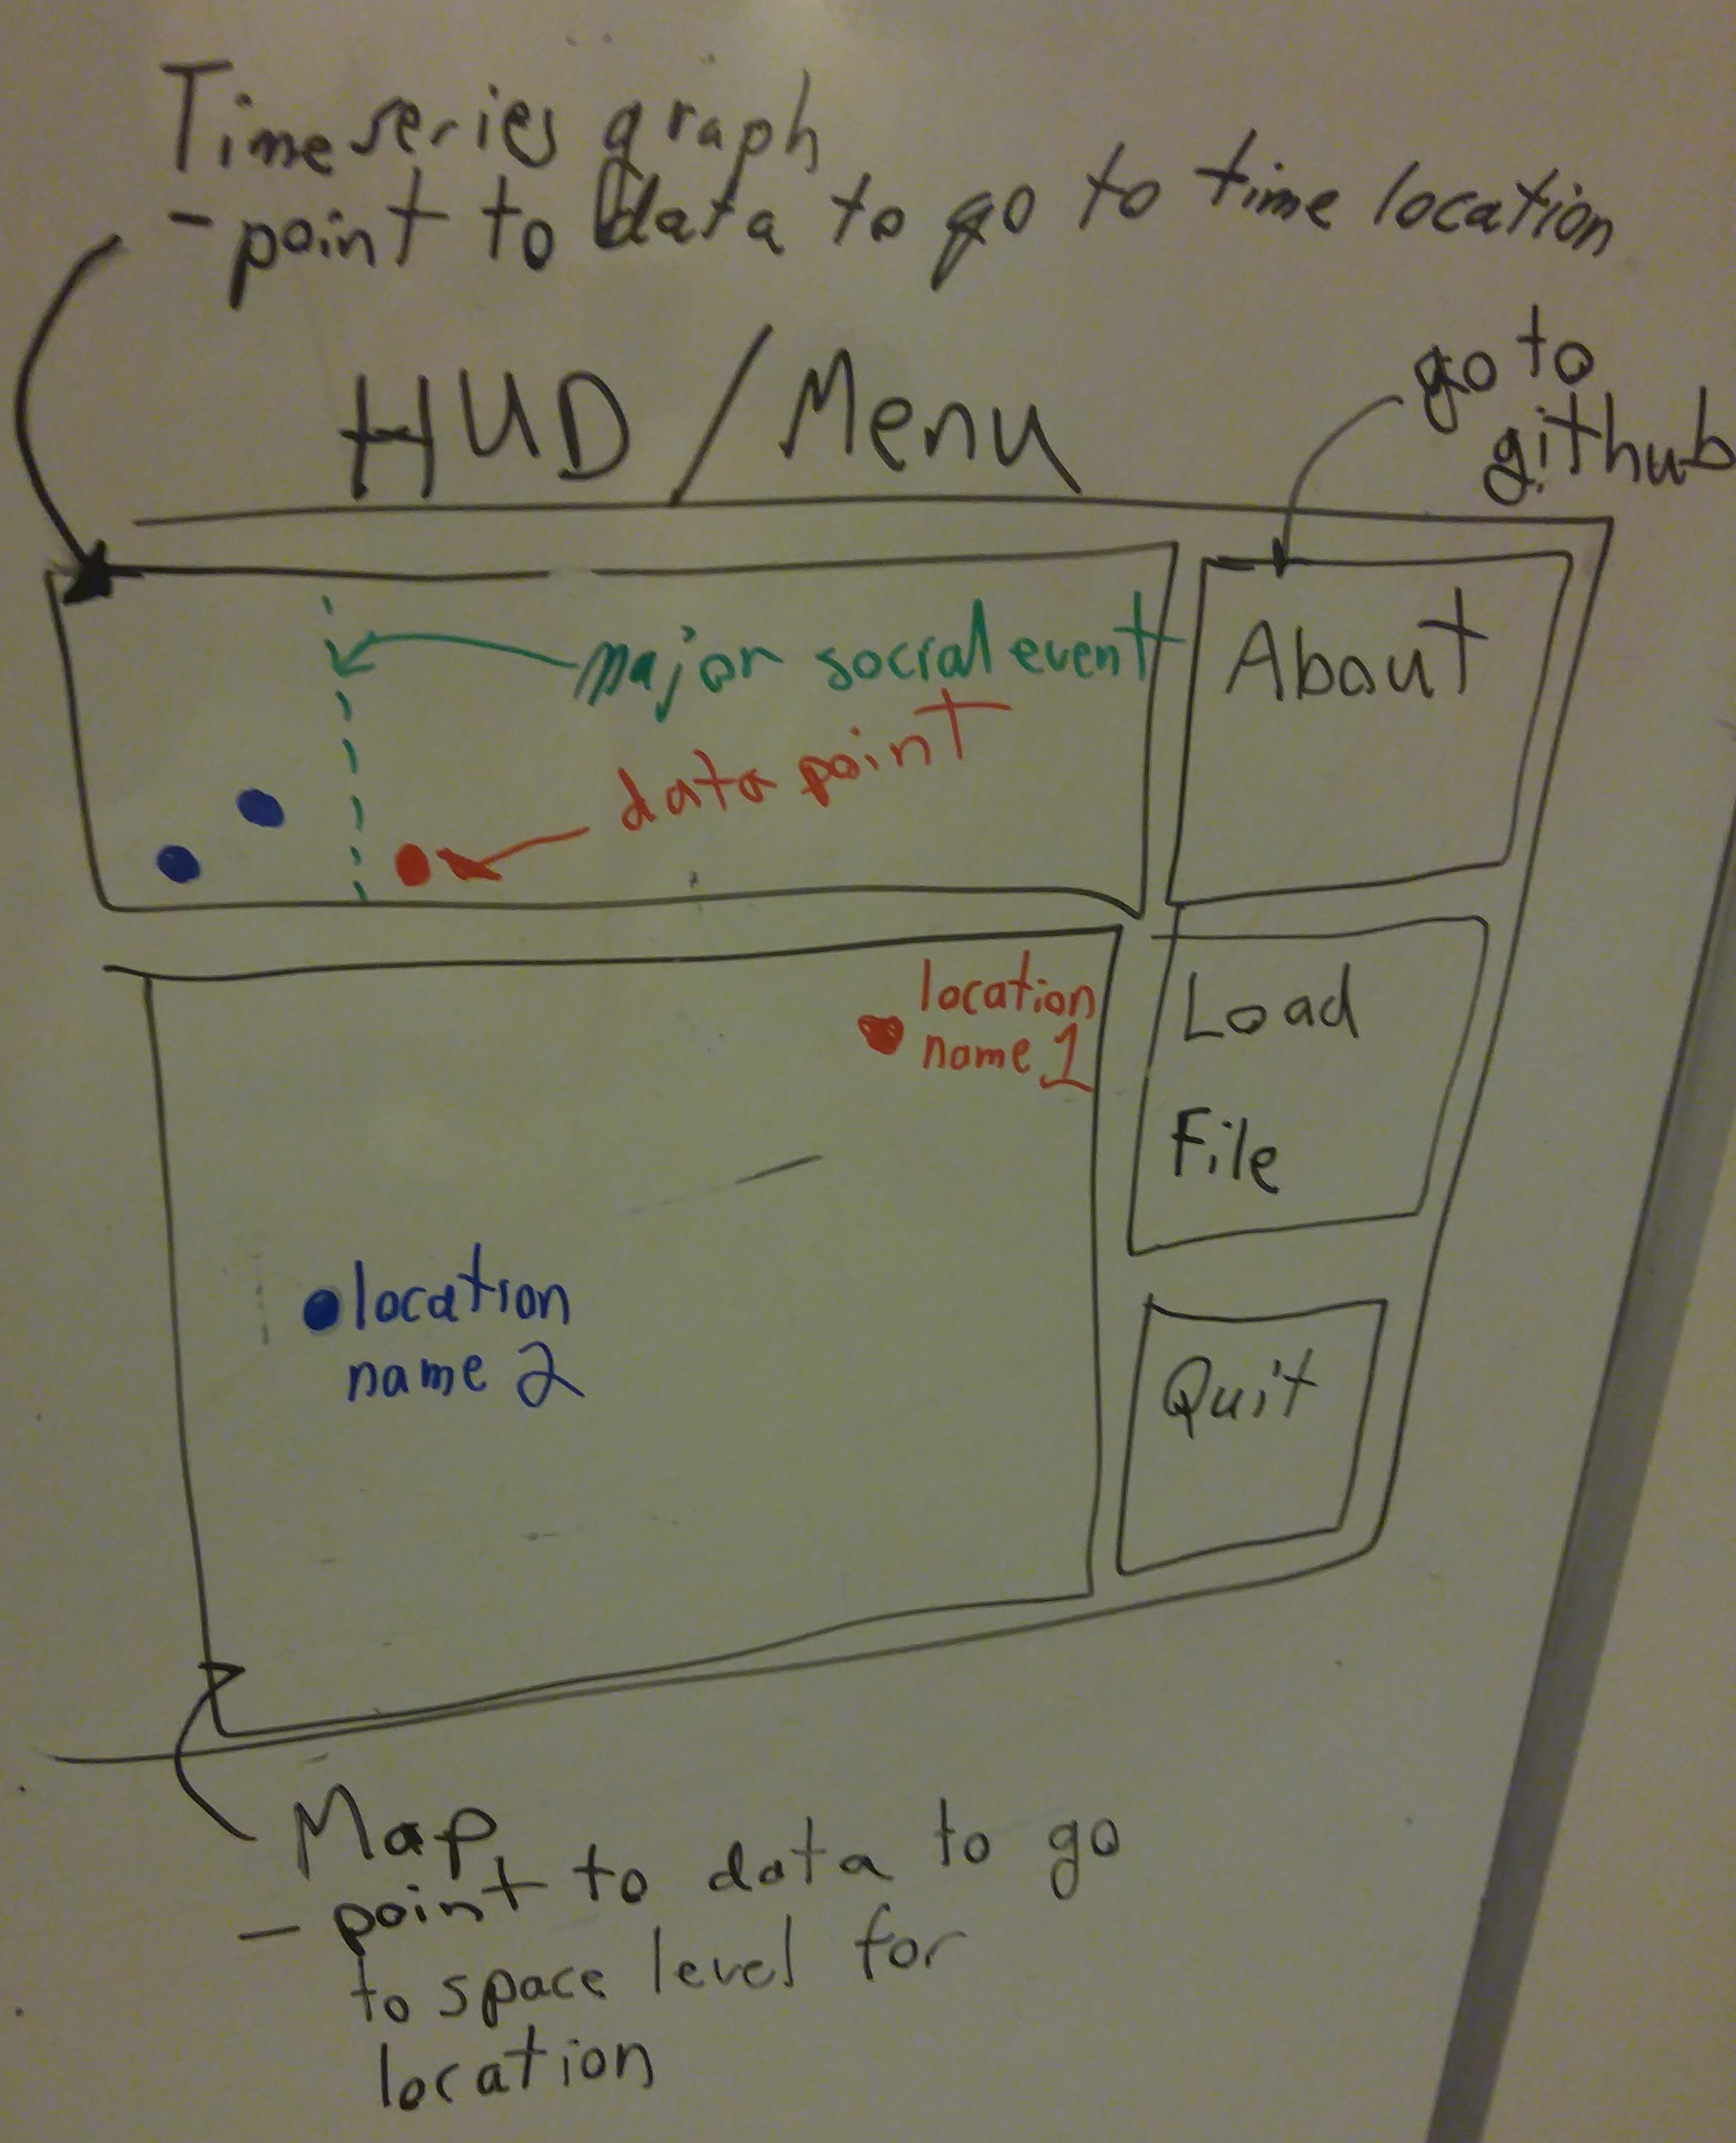 Time series graph
- point to data to go to time location
HUD / Menu
go to
github
major social event
data point
About
location
name 1
Load
File
location
name 2
Quit
Map
- point to data to go
to space level for
location